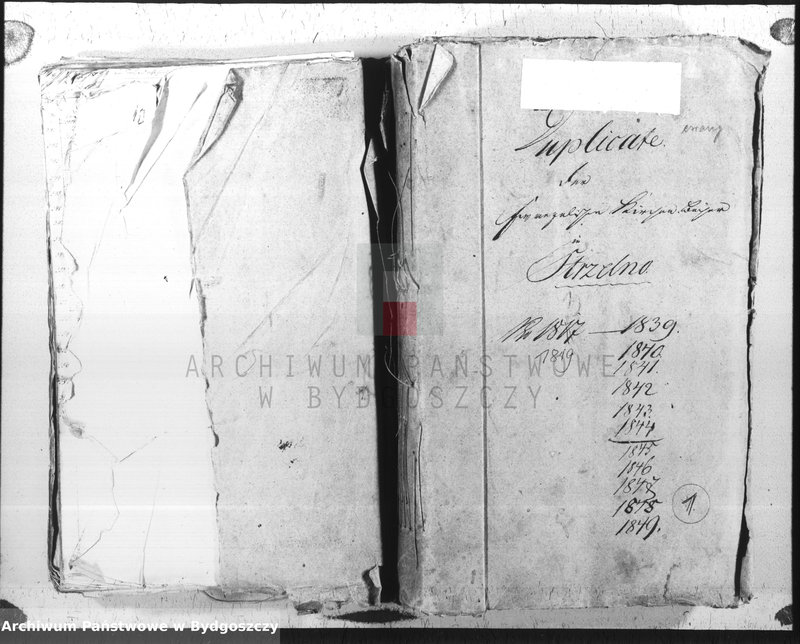 Duplicate
der
Evangelischen Kirchen Bücher
in
Strzelno
1817 — 1839.
1819
1840
1841
1842
1843
1844
1845
1846
1847
1848
1849.
1
ARCHIWUM PAŃSTWOWE
W BYDGOSZCZY
Archiwum Państwowe w Bydgoszczy